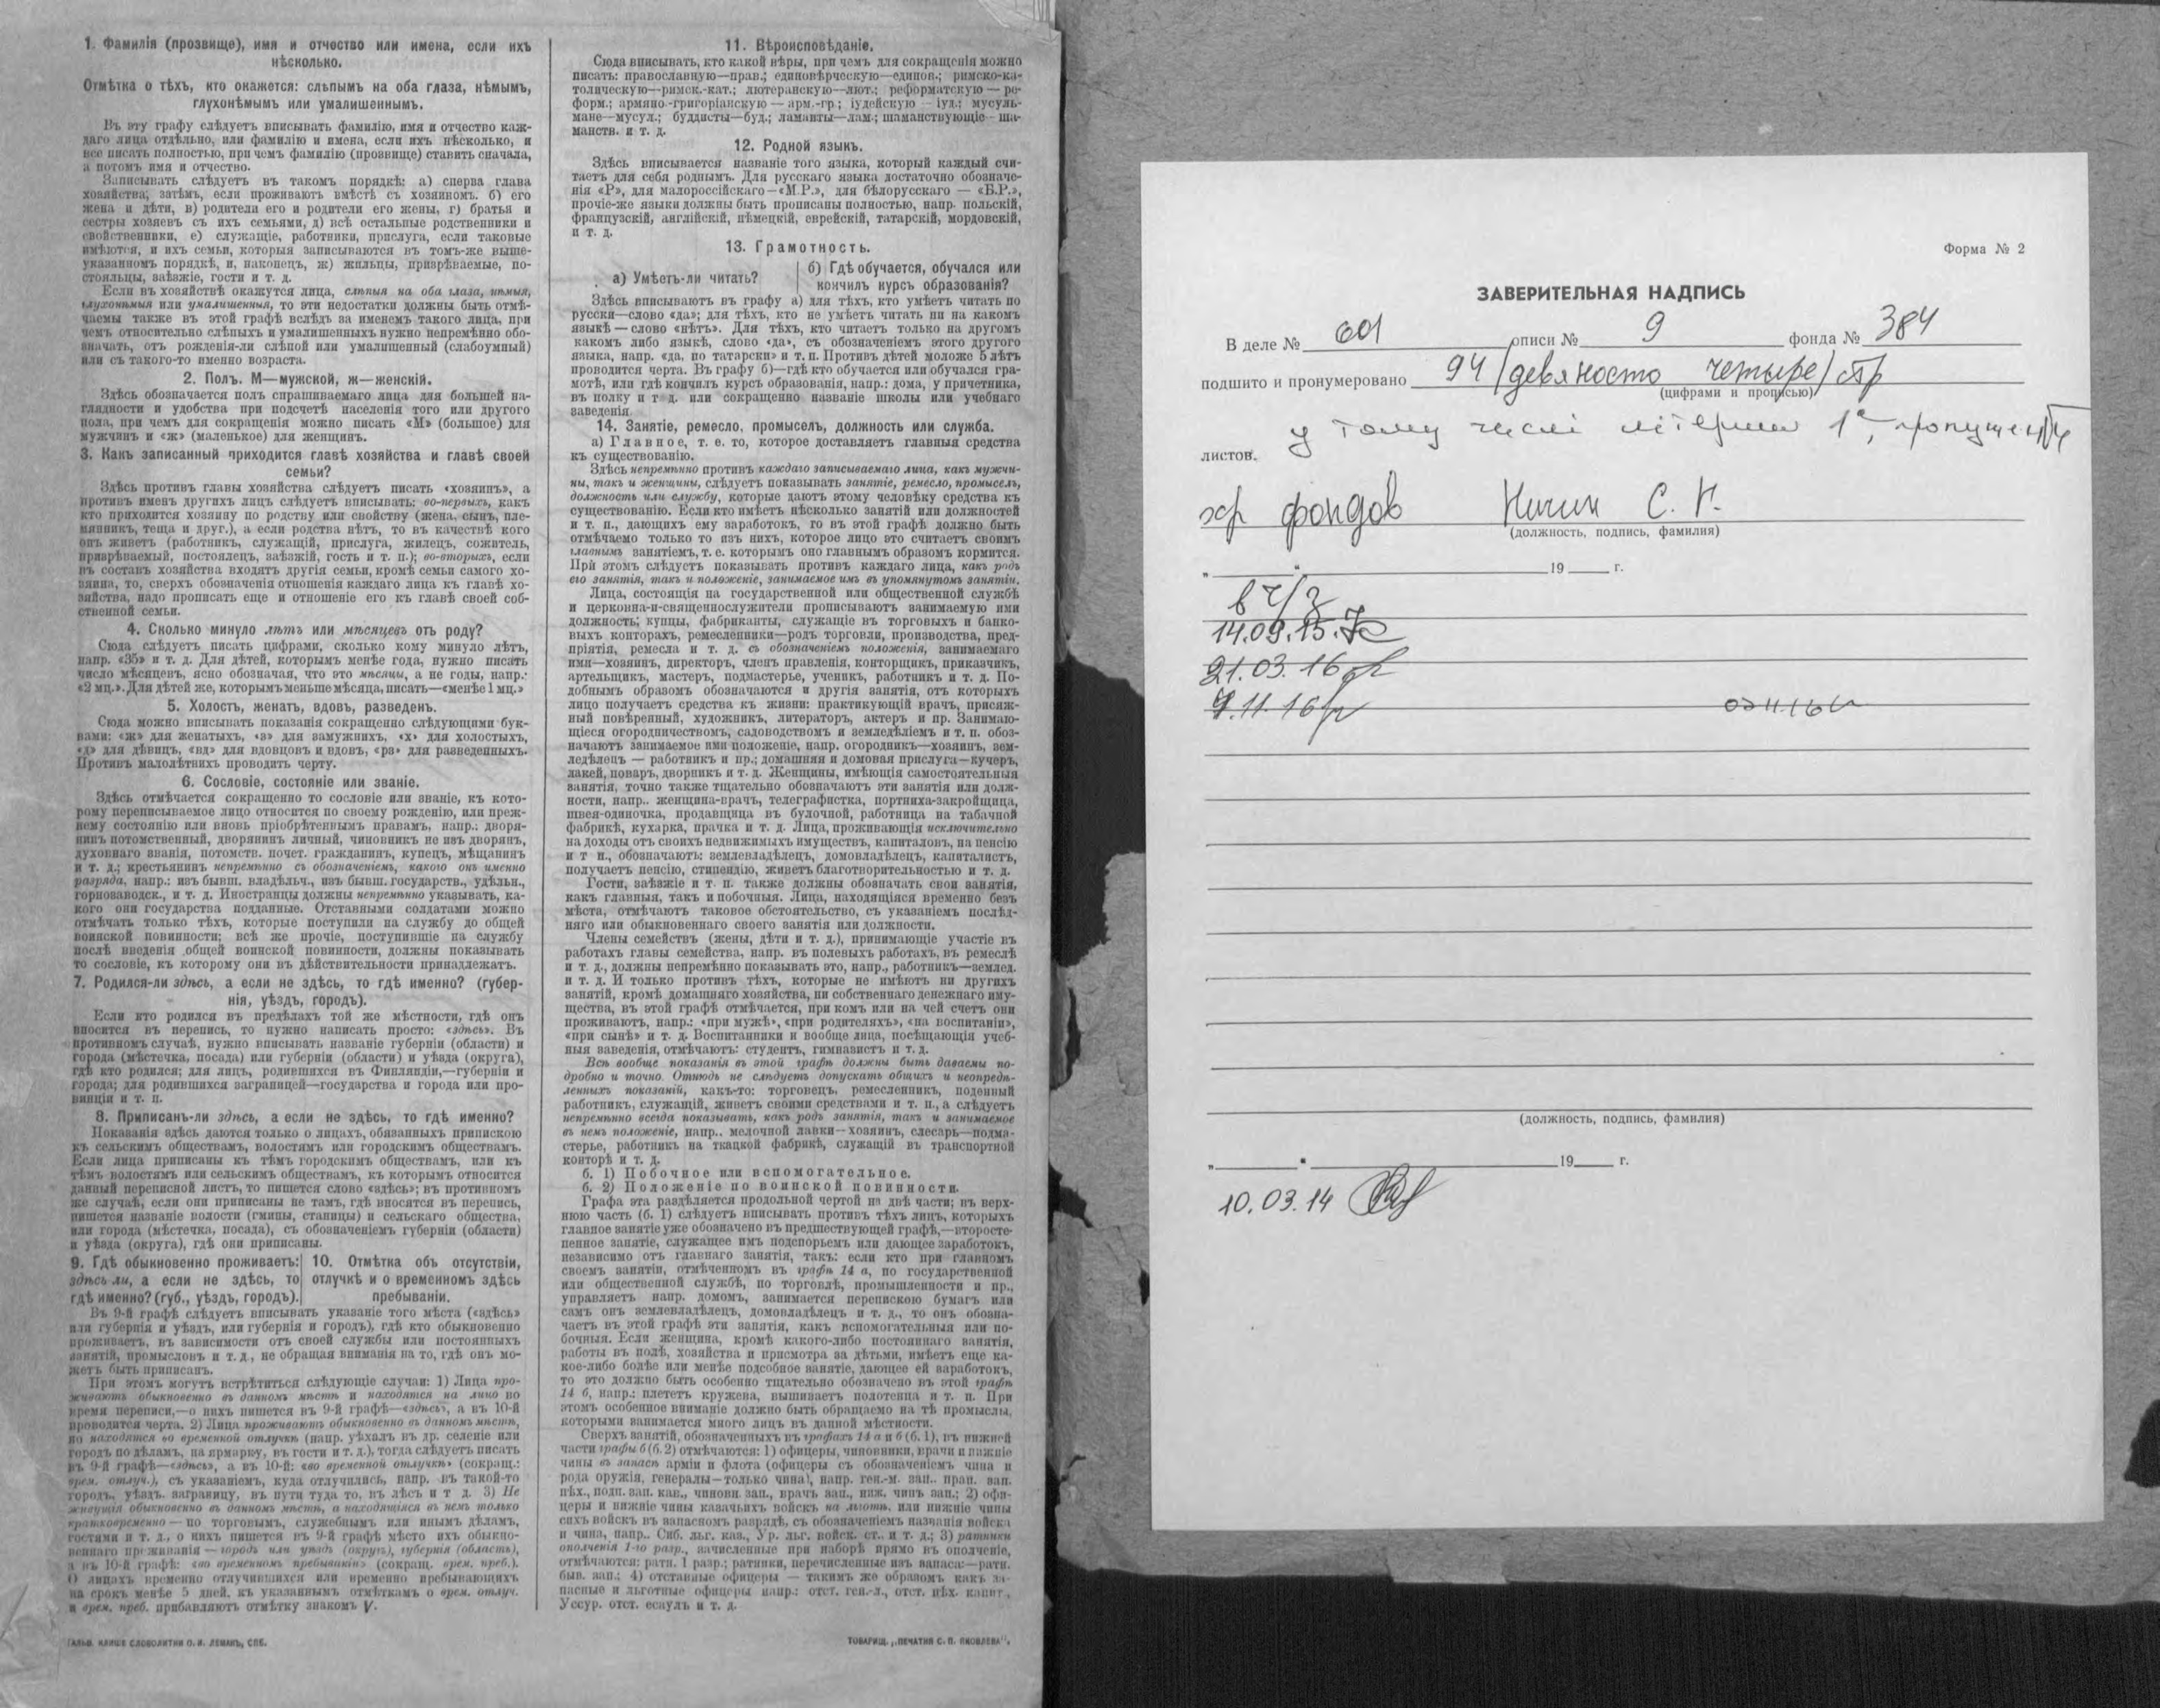 1. Фамилія (прозвище), имя и отчество или имена, если ихъ
нѣсколько.
Отмѣтка о тѣхъ, кто окажется: слѣпымъ на оба глаза, нѣмымъ,
глухонѣмымъ или умалишеннымъ.
Въ эту графу слѣдуетъ вписывать фамилію, имя и отчество каж-
даго лица отдѣльно, или фамилію и имена, если ихъ нѣсколько, и
все писать полностью, при чемъ фамилію (прозвище) ставить сначала,
а потомъ имя и отчество.
Записывать слѣдуетъ въ такомъ порядкѣ: а) сперва глава
хозяйства; затѣмъ, если проживаютъ вмѣстѣ съ хозяиномъ. б) его
жена и дѣти, в) родители его и родители его жены, г) братья и
сестры хозяевъ съ ихъ семьями, д) всѣ остальные родственники и
свойственники, е) служащіе, работники, прислуга, если таковые
имѣются, и ихъ семьи, которыя записываются въ томъ-же выше-
указанномъ порядкѣ, и, наконецъ, ж) жильцы, призрѣваемые, по-
стояльцы, заѣзжіе, гости и т. д.
Если въ хозяйствѣ окажутся лица, слѣпыя на оба глаза, нѣмыя,
глухонѣмыя или умалишенныя, то эти недостатки должны быть отмѣ-
чаемы также въ этой графѣ вслѣдъ за именемъ такого лица, при
чемъ относительно слѣпыхъ и умалишенныхъ нужно непремѣнно обо-
значать, отъ рожденія-ли слѣпой или умалишенный (слабоумный)
или съ такого-то именно возраста.
2. Полъ. М—мужской, ж—женскій.
Здѣсь обозначается полъ спрашиваемаго лица для большей на-
глядности и удобства при подсчетѣ населенія того или другого
пола, при чемъ для сокращенія можно писать «М» (большое) для
мужчинъ и «ж» (маленькое) для женщинъ.
3. Какъ записанный приходится главѣ хозяйства и главѣ своей
семьи?
Здѣсь противъ главы хозяйства слѣдуетъ писать «хозяинъ», а
противъ именъ другихъ лицъ слѣдуетъ вписывать: во-первыхъ, какъ
кто приходится хозяину по родству или свойству (жена, сынъ, пле-
мянникъ, теща и друг.), а если родства нѣтъ, то въ качествѣ кого
онъ живетъ (работникъ, служащій, прислуга, жилецъ, сожитель,
призрѣваемый, постоялецъ, заѣзжій, гость и т. п.); во-вторыхъ, если
въ составъ хозяйства входятъ другія семьи, кромѣ семьи самого хо-
зяина, то, сверхъ обозначенія отношенія каждаго лица къ главѣ хо-
зяйства, надо прописать еще и отношеніе его къ главѣ своей соб-
ственной семьи.
4. Сколько минуло лѣтъ или мѣсяцевъ отъ роду?
Сюда слѣдуетъ писать цифрами, сколько кому минуло лѣтъ,
напр. «35» и т. д. Для дѣтей, которымъ менѣе года, нужно писать
число мѣсяцевъ, ясно обозначая, что это мѣсяцы, а не годы, напр.:
«2 мц.». Для дѣтей же, которымъ меньше мѣсяца, писать—«менѣе 1 мц.»
5. Холостъ, женатъ, вдовъ, разведенъ.
Сюда можно вписывать показанія сокращенно слѣдующими бук-
вами: «ж» для женатыхъ, «з» для замужнихъ, «х» для холостыхъ,
«д» для дѣвицъ, «вд» для вдовцовъ и вдовъ, «рз» для разведенныхъ.
Противъ малолѣтнихъ проводить черту.
6. Сословіе, состояніе или званіе.
Здѣсь отмѣчается сокращенно то сословіе или званіе, къ кото-
рому переписываемое лицо относится по своему рожденію, или преж-
нему состоянію или вновь пріобрѣтеннымъ правамъ, напр.: дворя-
нинъ потомственный, дворянинъ личный, чиновникъ не изъ дворянъ,
духовнаго званія, потомств. почет. гражданинъ, купецъ, мѣщанинъ
и т. д.; крестьянинъ непремѣнно съ обозначеніемъ, какого онъ именно
разряда, напр.: изъ бывш. владѣльч., изъ бывш. государств., удѣльн.,
горнозаводск., и т. д. Иностранцы должны непремѣнно указывать, ка-
кого они государства подданные. Отставными солдатами можно
отмѣчать только тѣхъ, которые поступили на службу до общей
воинской повинности; всѣ же прочіе, поступившіе на службу
послѣ введенія общей воинской повинности, должны показывать
то сословіе, къ которому они въ дѣйствительности принадлежатъ.
7. Родился-ли здѣсь, а если не здѣсь, то гдѣ именно? (губер-
нія, уѣздъ, городъ).
Если кто родился въ предѣлахъ той же мѣстности, гдѣ онъ
вносится въ перепись, то нужно написать просто: «здѣсь». Въ
противномъ случаѣ, нужно вписывать названіе губерніи (области) и
города (мѣстечка, посада) или губерніи (области) и уѣзда (округа),
гдѣ кто родился; для лицъ, родившихся въ Финляндіи,—губерніи и
города; для родившихся заграницей—государства и города или про-
винціи и т. п.
8. Приписанъ-ли здѣсь, а если не здѣсь, то гдѣ именно?
Показанія здѣсь даются только о лицахъ, обязанныхъ припискою
къ сельскимъ обществамъ, волостямъ или городскимъ обществамъ.
Если лица приписаны къ тѣмъ городскимъ обществамъ, или къ
тѣмъ волостямъ или сельскимъ обществамъ, къ которымъ относится
данный переписной листъ, то пишется слово «здѣсь»; въ противномъ
же случаѣ, если они приписаны не тамъ, гдѣ вносятся въ перепись,
пишется названіе волости (гмины, станицы) и сельскаго общества,
или города (мѣстечка, посада), съ обозначеніемъ губерніи (области)
и уѣзда (округа), гдѣ они приписаны.
9. Гдѣ обыкновенно проживаетъ:
здѣсь ли, а если не здѣсь, то
гдѣ именно? (губ., уѣздъ, городъ).
10. Отмѣтка объ отсутствіи,
отлучкѣ и о временномъ здѣсь
пребываніи.
Въ 9-й графѣ слѣдуетъ вписывать указаніе того мѣста («здѣсь»
или губернія и уѣздъ, или губернія и городъ), гдѣ кто обыкновенно
проживаетъ, въ зависимости отъ своей службы или постоянныхъ
занятій, промысловъ и т. д., не обращая вниманія на то, гдѣ онъ мо-
жетъ быть приписанъ.
При этомъ могутъ встрѣтиться слѣдующіе случаи: 1) Лица про-
живаютъ обыкновенно въ данномъ мѣстѣ и находятся на лицо во
время переписи,—о нихъ пишется въ 9-й графѣ—«здѣсь», а въ 10-й
проводится черта. 2) Лица проживаютъ обыкновенно въ данномъ мѣстѣ,
но находятся во временной отлучкѣ (напр. уѣхалъ въ др. селеніе или
городъ по дѣламъ, на ярмарку, въ гости и т. д.), тогда слѣдуетъ писать
въ 9-й графѣ—«здѣсь», а въ 10-й: «во временной отлучкѣ» (сокращ.:
врем. отлуч.), съ указаніемъ, куда отлучились, напр. въ такой-то
городъ, уѣздъ, заграницу, въ пути туда то, въ лѣсъ и т д. 3) Не
живущія обыкновенно въ данномъ мѣстѣ, а находящіяся въ немъ только
кратковременно — по торговымъ, служебнымъ или инымъ дѣламъ,
гостями и т. д., о нихъ пишется въ 9-й графѣ мѣсто ихъ обыкно-
веннаго проживанія — городъ или уѣздъ (округъ), губернія (область),
а въ 10-й графѣ: «во временномъ пребываніи» (сокращ. врем. преб.).
О лицахъ временно отлучившихся или временно пребывающихъ
на срокъ менѣе 5 дней, къ указаннымъ отмѣткамъ о врем. отлуч.
и врем. преб. прибавляютъ отмѣтку знакомъ V.
ГАЛЬВ. КЛИШЕ СЛОВОЛИТНИ О. И. ЛЕМАНЪ, СПБ.
11. Вѣроисповѣданіе.
Сюда вписывать, кто какой вѣры, при чемъ для сокращенія можно
писать: православную—прав.; единовѣрческую—единов.; римско-ка-
толическую—римск.-кат.; лютеранскую—лют.; реформатскую — ре-
форм.; армяно-григоріанскую — арм.-гр; іудейскую — іуд.; мусуль-
мане—мусул.; буддисты—буд.; ламаиты—лам.; шаманствующіе—ша-
манств. и т. д.
12. Родной языкъ.
Здѣсь вписывается названіе того языка, который каждый счи-
таетъ для себя роднымъ. Для русскаго языка достаточно обозначе-
нія «Р», для малороссійскаго—«М.Р.», для бѣлорусскаго — «Б.Р.»,
прочіе-же языки должны быть прописаны полностью, напр. польскій,
французскій, англійскій, нѣмецкій, еврейскій, татарскій, мордовскій,
и т. д.
13. Грамотность.
а) Умѣетъ-ли читать?
б) Гдѣ обучается, обучался или
кончилъ курсъ образованія?
Здѣсь вписываютъ въ графу а) для тѣхъ, кто умѣетъ читать по
русски—слово «да»; для тѣхъ, кто не умѣетъ читать ни на какомъ
языкѣ — слово «нѣтъ». Для тѣхъ, кто читаетъ только на другомъ
какомъ либо языкѣ, слово «да», съ обозначеніемъ этого другого
языка, напр. «да, по татарски» и т. п. Противъ дѣтей моложе 5 лѣтъ
проводится черта. Въ графу б)—гдѣ кто обучается или обучался гра-
мотѣ, или гдѣ кончилъ курсъ образованія, напр.: дома, у причетника,
въ полку и т д. или сокращенно названіе школы или учебнаго
заведенія.
14. Занятіе, ремесло, промыселъ, должность или служба.
а) Главное, т. е. то, которое доставляетъ главныя средства
къ существованію.
Здѣсь непремѣнно противъ каждаго записываемаго лица, какъ мужчи-
ны, такъ и женщины, слѣдуетъ показывать занятіе, ремесло, промыселъ,
должность или службу, которые даютъ этому человѣку средства къ
существованію. Если кто имѣетъ нѣсколько занятій или должностей
и т. п., дающихъ ему заработокъ, то въ этой графѣ должно быть
отмѣчаемо только то изъ нихъ, которое лицо это считаетъ своимъ
главнымъ занятіемъ, т. е. которымъ оно главнымъ образомъ кормится.
При этомъ слѣдуетъ показывать противъ каждаго лица, какъ родъ
его занятія, такъ и положеніе, занимаемое имъ въ упомянутомъ занятіи.
Лица, состоящія на государственной или общественной службѣ
и церковна-и-священнослужители прописываютъ занимаемую ими
должность; купцы, фабриканты, служащіе въ торговыхъ и банко-
выхъ конторахъ, ремесленники—родъ торговли, производства, пред-
пріятія, ремесла и т. д. съ обозначеніемъ положенія, занимаемаго
ими—хозяинъ, директоръ, членъ правленія, конторщикъ, приказчикъ,
артельщикъ, мастеръ, подмастерье, ученикъ, работникъ и т. д. По-
добнымъ образомъ обозначаются и другія занятія, отъ которыхъ
лицо получаетъ средства къ жизни: практикующій врачъ, присяж-
ный повѣренный, художникъ, литераторъ, актеръ и пр. Занимаю-
щіеся огородничествомъ, садоводствомъ и земледѣліемъ и т. п. обоз-
начаютъ занимаемое ими положеніе, напр. огородникъ—хозяинъ, зем-
ледѣлецъ — работникъ и пр.; домашняя и домовая прислуга—кучеръ,
лакей, поваръ, дворникъ и т. д. Женщины, имѣющія самостоятельныя
занятія, точно также тщательно обозначаютъ эти занятія или долж-
ности, напр.. женщина-врачъ, телеграфистка, портниха-закройщица,
швея-одиночка, продавщица въ булочной, работница на табачной
фабрикѣ, кухарка, прачка и т. д. Лица, проживающія исключительно
на доходы отъ своихъ недвижимыхъ имуществъ, капиталовъ, на пенсію
и т п., обозначаютъ: землевладѣлецъ, домовладѣлецъ, капиталистъ,
получаетъ пенсію, стипендію, живетъ благотворительностью и т. д.
Гости, заѣзжіе и т. п. также должны обозначать свои занятія,
какъ главныя, такъ и побочныя. Лица, находящіяся временно безъ
мѣста, отмѣчаютъ таковое обстоятельство, съ указаніемъ послѣд-
няго или обыкновеннаго своего занятія или должности.
Члены семействъ (жены, дѣти и т. д.), принимающіе участіе въ
работахъ главы семейства, напр. въ полевыхъ работахъ, въ ремеслѣ
и т. д., должны непремѣнно показывать это, напр., работникъ—землед.
и т. д. И только противъ тѣхъ, которые не имѣютъ ни другихъ
занятій, кромѣ домашняго хозяйства, ни собственнаго денежнаго иму-
щества, въ этой графѣ отмѣчается, при комъ или на чей счетъ они
проживаютъ, напр.: «при мужѣ», «при родителяхъ», «на воспитаніи»,
«при сынѣ» и т. д. Воспитанники и вообще лица, посѣщающія учеб-
ныя заведенія, отмѣчаютъ: студентъ, гимназистъ и т. д.
Всѣ вообще показанія въ этой графѣ должны быть даваемы по-
дробно и точно. Отнюдь не слѣдуетъ допускать общихъ и неопредѣ-
ленныхъ показаній, какъ-то: торговецъ, ремесленникъ, поденный
работникъ, служащій, живетъ своими средствами и т. п., а слѣдуетъ
непремѣнно всегда показывать, какъ родъ занятія, такъ и занимаемое
въ немъ положеніе, напр.. мелочной лавки—хозяинъ, слесарь—подма-
стерье, работникъ на ткацкой фабрикѣ, служащій въ транспортной
конторѣ и т. д.
б. 1) Побочное или вспомогательное.
б. 2) Положеніе по воинской повинности.
Графа эта раздѣляется продольной чертой на двѣ части; въ верх-
нюю часть (б. 1) слѣдуетъ вписывать противъ тѣхъ лицъ, которыхъ
главное занятіе уже обозначено въ предшествующей графѣ,—второсте-
пенное занятіе, служащее имъ подспорьемъ или дающее заработокъ,
независимо отъ главнаго занятія, такъ: если кто при главномъ
своемъ занятіи, отмѣченномъ въ графѣ 14 а, по государственной
или общественной службѣ, по торговлѣ, промышленности и пр.,
управляетъ напр. домомъ, занимается перепискою бумагъ или
самъ онъ землевладѣлецъ, домовладѣлецъ и т. д., то онъ обозна-
чаетъ въ этой графѣ эти занятія, какъ вспомогательныя или по-
бочныя. Если женщина, кромѣ какого-либо постояннаго занятія,
работы въ полѣ, хозяйства и присмотра за дѣтьми, имѣетъ еще ка-
кое-либо болѣе или менѣе подсобное занятіе, дающее ей заработокъ,
то это должно быть особенно тщательно обозначено въ этой графѣ
14 б, напр.: плететъ кружева, вышиваетъ полотенца и т. п. При
этомъ особенное вниманіе должно быть обращаемо на тѣ промыслы,
которыми занимается много лицъ въ данной мѣстности.
Сверхъ занятій, обозначенныхъ въ графахъ 14 а и б (б. 1), въ нижней
части графы б (б. 2) отмѣчаются: 1) офицеры, чиновники, врачи и нижніе
чины въ запасѣ арміи и флота (офицеры съ обозначеніемъ чина и
рода оружія, генералы—только чина), напр. ген.-м. зап.. прап. зап.
пѣх., подп. зап. кав., чиновн. зап., врачъ зап., ниж. чинъ зап.; 2) офи-
церы и нижніе чины казачьихъ войскъ на льготѣ, или нижніе чины
сихъ войскъ въ запасномъ разрядѣ, съ обозначеніемъ названія войска
и чина, напр.. Сиб. льг. каз., Ур. льг. войск. ст.. и т. д.; 3) ратники
ополченія 1-го разр., зачисленные при наборѣ прямо въ ополченіе,
отмѣчаются: ратн. 1 разр.; ратники, перечисленные изъ запаса:—ратн.
быв. зап.; 4) отставные офицеры — такимъ же образомъ какъ за-
пасные и льготные офицеры напр.: отст. ген.-л., отст. пѣх. капит.,
Уссур. отст. есаулъ и т. д.
ТОВАРИЩ. „ПЕЧАТНЯ С. П. ЯКОВЛЕВА".
Форма № 2
ЗАВЕРИТЕЛЬНАЯ НАДПИСЬ
В деле № 601 описи № 9 фонда № 384
подшито и пронумеровано 94 /девяносто четыре/
(цифрами и прописью)
у тому числі літерних 1а, пропущених
листов.
хр фондов С. Н.
(должность, подпись, фамилия)
„ “ 19 г.
в ч/з
14.09.15.
21.03.16
9.11.16
(должность, подпись, фамилия)
„ “ 19 г.
10.03.14